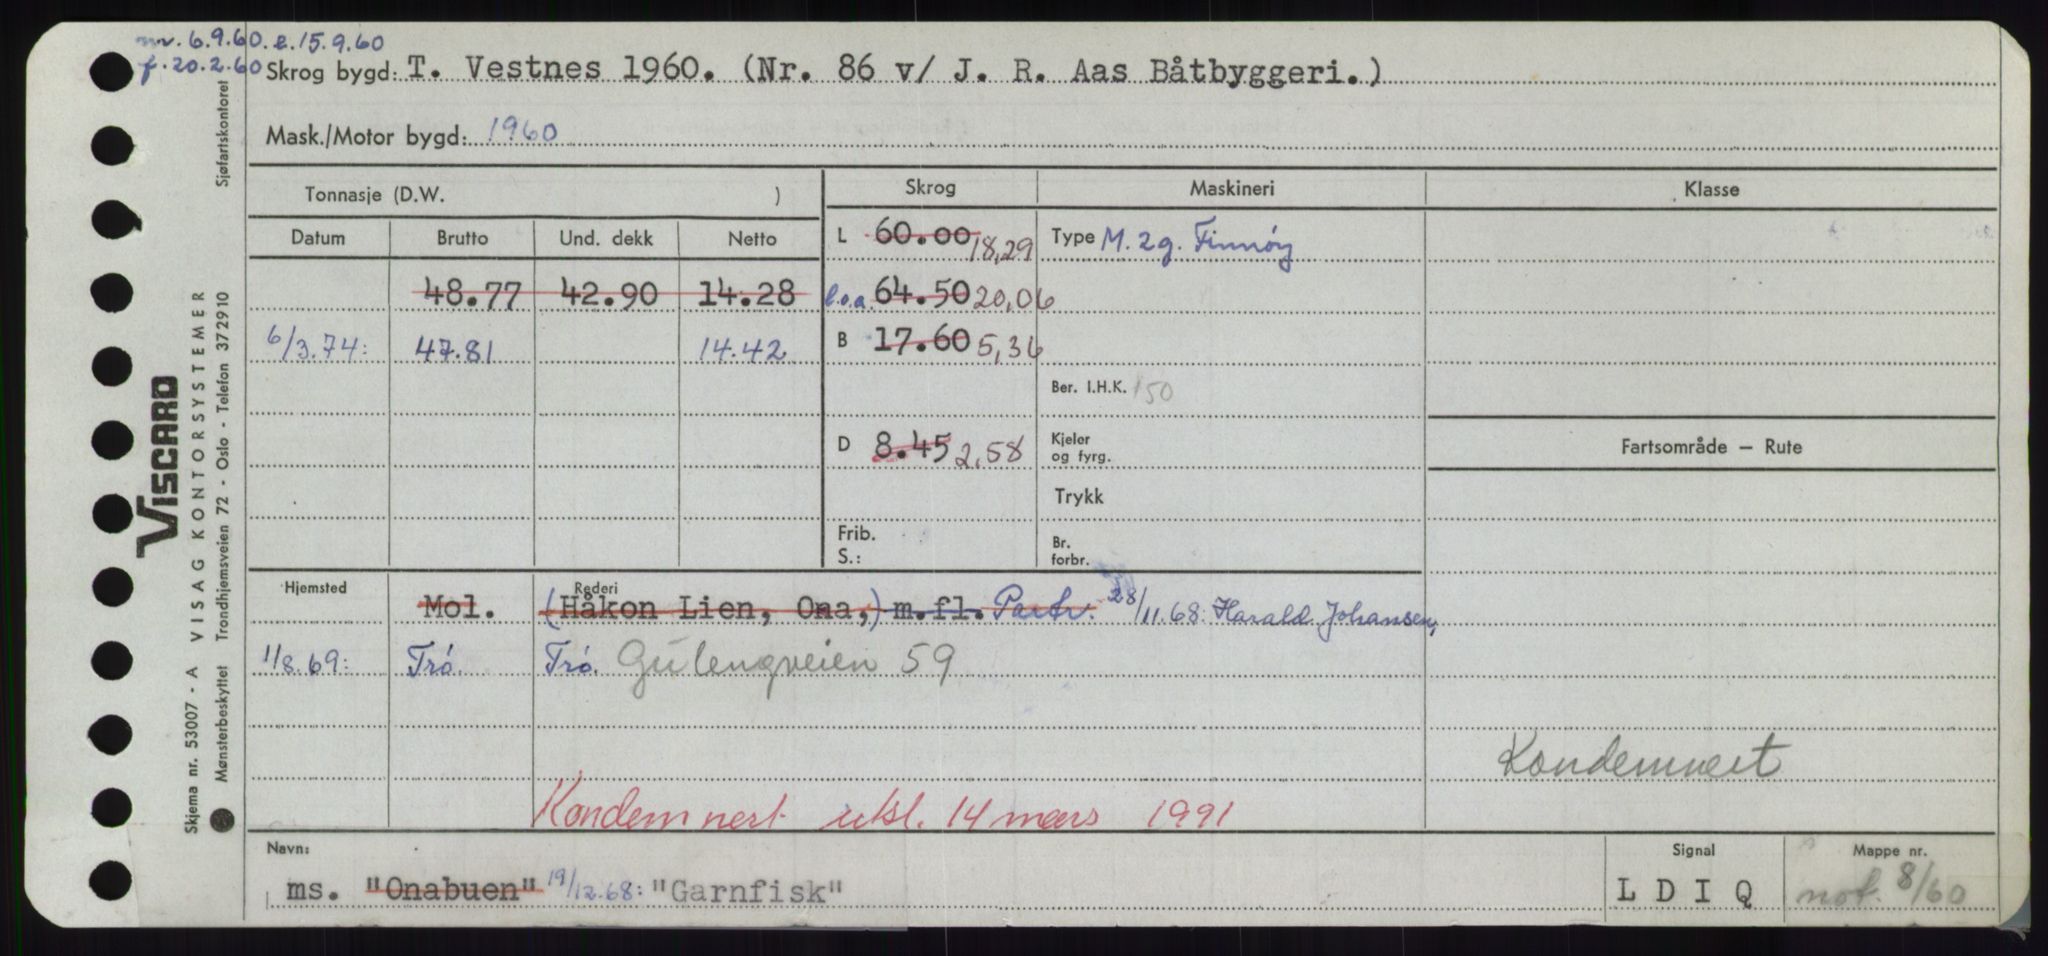 nv. 6.9.60. l. 15.9.60
f. 20.2.60 Skrog bygd: T. Vestnes 1960. (Nr. 86 v/ J. R. Aas Båtbyggeri.)
Mask./Motor bygd: 1960
Tonnasje (D.W. )
Skrog Maskineri Klasse
Datum Brutto Und. dekk Netto
L 60.00 18,29 Type M. 2g. Finnöy
48.77 42.90 14.28 l.o.a. 64.50 20,06
6/3.74: 47.81 14.42 B 17.60 5,36
Ber. I.H.K. 150
D 8.45 2,58 Kjeler
og fyrg.
Fartsområde — Rute
Trykk
Frib.
S.:
Br.
forbr.
Hjemsted Rederi
Mol. (Håkon Lien, Ona,) m.fl. Partr. 28/11.68: Harald Johansen,
1/8.69: Trö. Trö. Gulengveien 59
Kondemnert
Kondemnert utsl. 14 mars 1991
Navn: Signal Mappe nr.
ms. "Onabuen" 19/12.68: "Garnfisk" L D I Q not. 8/60
VISCARD
Skjema nr. 53007 - A VISAG KONTORSYSTEMER
Mønsterbeskyttet Trondhjemsveien 72 - Oslo - Telefon 372910 Sjøfartskontoret